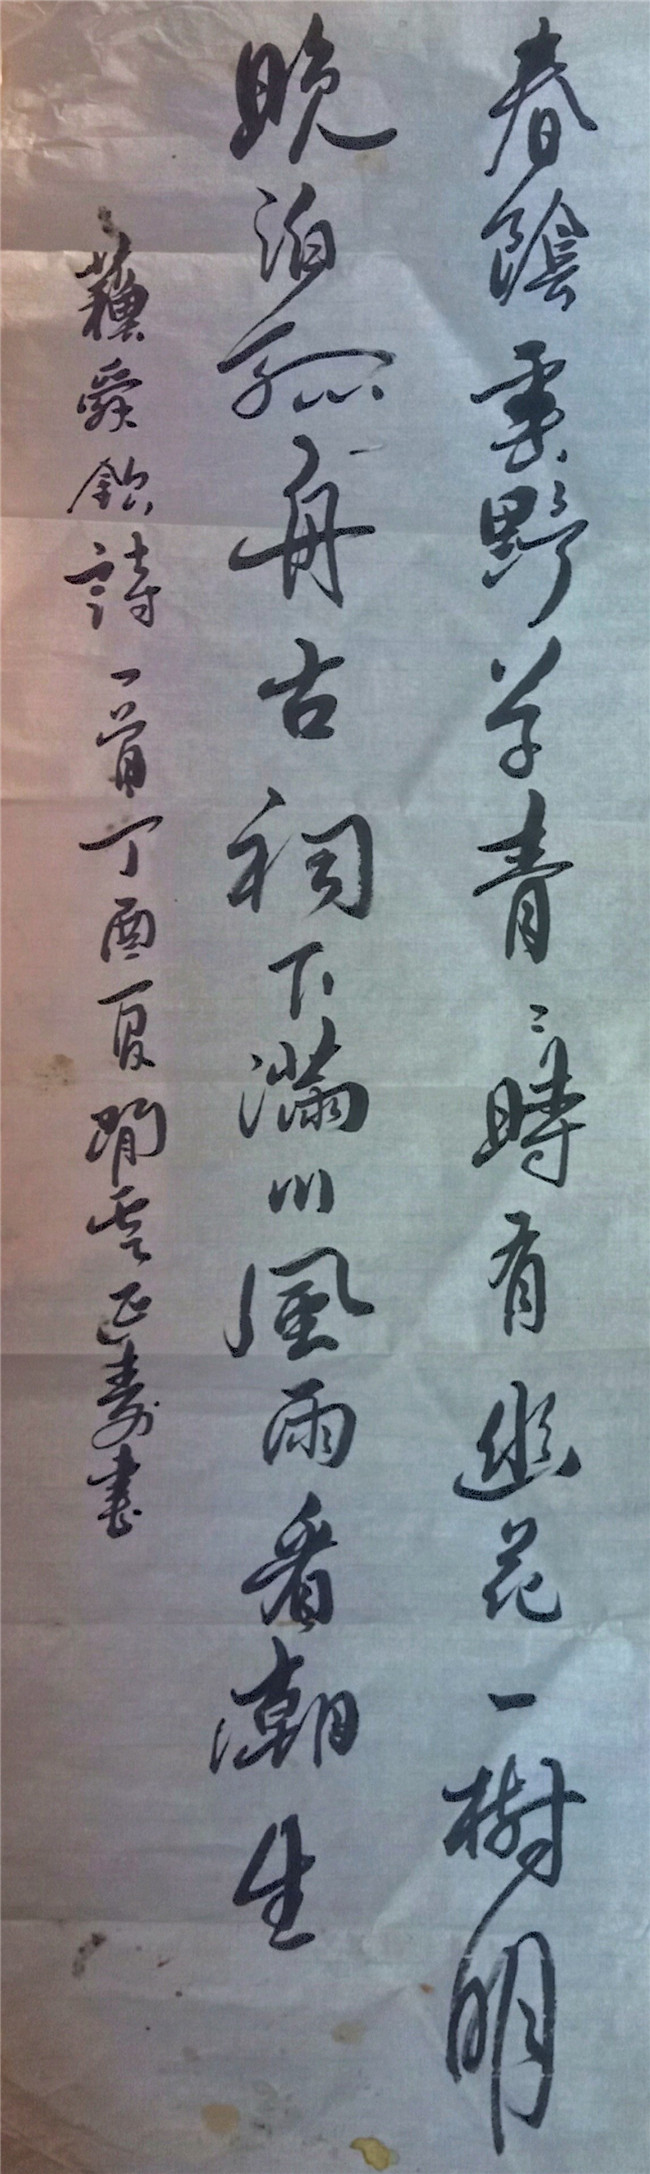 春陰垂野草青〻時有幽花一樹明
晚泊孤舟古祠下滿川風雨看潮生
蘇舜欽詩一首丁酉夏閒雲延壽書